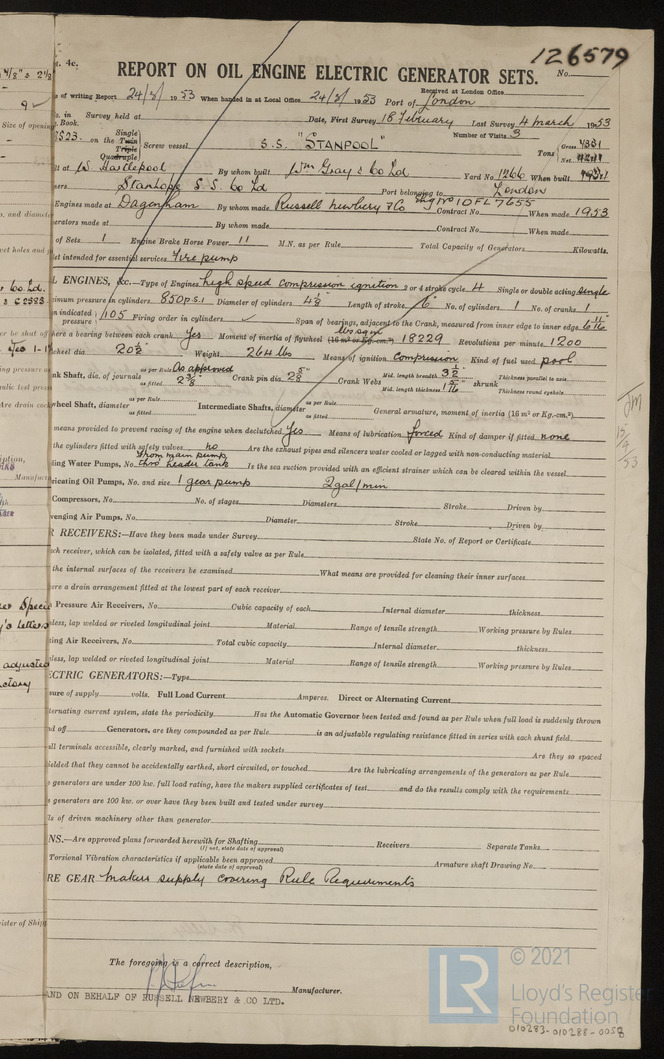 126579
4c.
REPORT ON OIL ENGINE ELECTRIC GENERATOR SETS. No.
Received at London Office
of writing Report 24/8/ 1953 When handed in at Local Office 24/8/ 1953 Port of London
in Survey held at Date, First Survey 18 February Last Survey 4 March 1953
Book. Number of Visits 3
on the Single Twin Triple Quadruple Screw vessel S.S. "STANPOOL" Tons Gross Net
at W Hartlepool By whom built Wm Gray & Co Ld Yard No. 1266 When built
Stanhope S.S. Co Ld Port belonging to London
Engines made at Dagenham By whom made Russell Newbery & Co Eng No 10FL7655 Contract No. When made 1953
made at By whom made Contract No. When made
of Sets 1 Engine Brake Horse Power 11 M.N. as per Rule Total Capacity of Generators Kilowatts.
intended for essential services Fire pump
ENGINES, &c.—Type of Engines high speed compression ignition 2 or 4 stroke cycle 4 Single or double acting single
pressure in cylinders 850 p.s.i Diameter of cylinders 4½ Length of stroke 6" No. of cylinders 1 No. of cranks 1
indicated pressure 105 Firing order in cylinders ✓ Span of bearings, adjacent to the Crank, measured from inner edge to inner edge
a bearing between each crank Yes Moment of inertia of flywheel (16 m² or Kg.-cm.²) lbs sq in 18229 Revolutions per minute 1200
dia 20½ Weight 264 lbs Means of ignition Compression Kind of fuel used pool
Shaft, dia. of journals as per Rule As approved as fitted 2⅜ Crank pin dia. 2⅝" Crank Webs Mid. length breadth 3½ Mid. length thickness shrunk Thickness parallel to axis Thickness round eyehole
Shaft, diameter as per Rule as fitted Intermediate Shafts, diameter as per Rule as fitted General armature, moment of inertia (16 m² or Kg.-cm.²)
means provided to prevent racing of the engine when declutched Yes Means of lubrication forced Kind of damper if fitted none
the cylinders fitted with safety valves no Are the exhaust pipes and silencers water cooled or lagged with non-conducting material
Water Pumps, No. From main pump thro header tank Is the sea suction provided with an efficient strainer which can be cleared within the vessel
Oil Pumps, No. and size 1 gear pump 2 gal/min
Compressors, No. No. of stages Diameters Stroke Driven by
Air Pumps, No. Diameter Stroke Driven by
RECEIVERS:—Have they been made under Survey State No. of Report or Certificate
each receiver, which can be isolated, fitted with a safety valve as per Rule
the internal surfaces of the receivers be examined What means are provided for cleaning their inner surfaces
a drain arrangement fitted at the lowest part of each receiver
Pressure Air Receivers, No. Cubic capacity of each Internal diameter thickness
lap welded or riveted longitudinal joint Material Range of tensile strength Working pressure by Rules
Air Receivers, No. Total cubic capacity Internal diameter thickness
lap welded or riveted longitudinal joint Material Range of tensile strength Working pressure by Rules
ECTRIC GENERATORS:—Type
of supply volts. Full Load Current Amperes. Direct or Alternating Current
current system, state the periodicity Has the Automatic Governor been tested and found as per Rule when full load is suddenly thrown
off Generators, are they compounded as per Rule is an adjustable regulating resistance fitted in series with each shunt field
all terminals accessible, clearly marked, and furnished with sockets Are they so spaced
that they cannot be accidentally earthed, short circuited, or touched Are the lubricating arrangements of the generators as per Rule
generators are under 100 kw. full load rating, have the makers supplied certificates of test and do the results comply with the requirements
generators are 100 kw. or over have they been built and tested under survey
of driven machinery other than generator
NS.—Are approved plans forwarded herewith for Shafting Receivers Separate Tanks
(If not, state date of approval)
Torsional Vibration characteristics if applicable been approved Armature shaft Drawing No.
(state date of approval)
RE GEAR makers supply covering Rule Requirements
The foregoing is a correct description,
Manufacturer.
AND ON BEHALF OF RUSSELL NEWBERY & CO LTD.
15/4/53
LR
© 2021
Lloyd's Register
Foundation
010283-010288-0058